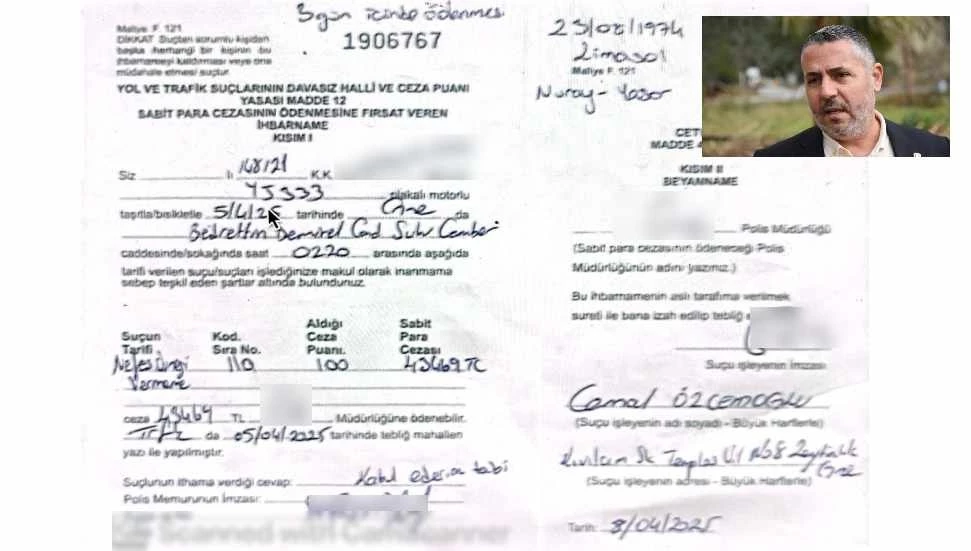 3 gün içinde ödenmesi
1906767
Maliye F. 121
DİKKAT Suçtan sorumlu kişiden
başka herhangi bir kişinin bu
ihbarnameyi kaldırması veya ona
müdahale etmesi suçtur.
YOL VE TRAFİK SUÇLARININ DAVASIZ HALLİ VE CEZA PUANI
YASASI MADDE 12
SABİT PARA CEZASININ ÖDENMESİNE FIRSAT VEREN
İHBARNAME
KISIM I
Siz K.K
YJ333 plakalı motorlu
taşıtla/bisikletle 5/4/25 tarihinde Gne da
Bedrettin Demirel Cad Suhr Cemberi
caddesinde/sokağında saat 0220 arasında aşağıda
tarifi verilen suçu/suçları işlediğinize makul olarak inanmama
sebep teşkil eden şartlar altında bulundunuz.
Suçun Tarifi Kod. Sıra No. Aldığı Ceza Puanı. Sabit Para Cezası
Nefes Örneği 110 100 43469 TL
Vermeme
ceza 43469 TL Müdürlüğüne ödenebilir.
da 05/04/2025 tarihinde tebliğ mahallen
yazı ile yapılmıştır.
Suçlunun ithama verdiği cevap: Kabul ederim tabi
Polis Memurunun İmzası:
Scanned with CamScanner
23/08/1974
Limasol
Maliye F. 121
Nuray - Yaşar
MADDE
KISIM II
BEYANNAME
Polis Müdürlüğü
(Sabit para cezasının ödeneceği Polis
Müdürlüğünün adını yazınız.)
Bu ihbarnamenin aslı tarafıma verilmek
sureti ile bana izah edilip tebliğ
Suçu işleyenin İmzası
Cemal ÖZCEMOGLU
(Suçu işleyenin adı soyadı - Büyük Harflerle)
Kıvılcım Sk No8 Zeytinlik
Gne
(Suçu işleyenin adresi - Büyük Harflerle)
Tarih: 8/04/2025